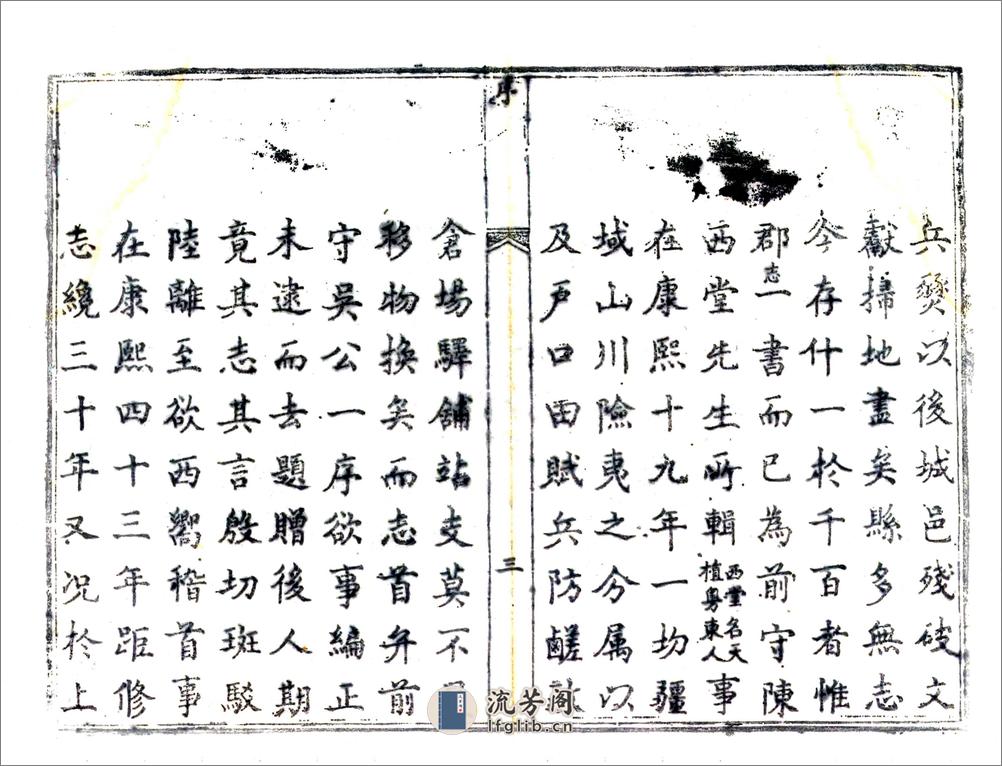 兵燹以後城邑殘破文
獻掃地盡矣縣多無志
今存什一於千百者惟
郡志一書而已為前守陳
西堂先生所輯西堂名天植粤東人事
在康熙十九年一切疆
域山川險夷之分属以
及戸口田賦兵防鹺
序
三
倉場驛舖站支莫不
移物換矣而志首弁前
守吳公一序欲事編正
未逮而去題贈後人期
竟其志其言殷切斑駁
陸離至欲西嚮稽首事
在康熙四十三年距修
志纔三十年又况於上
流芳阁
lfglib.cn